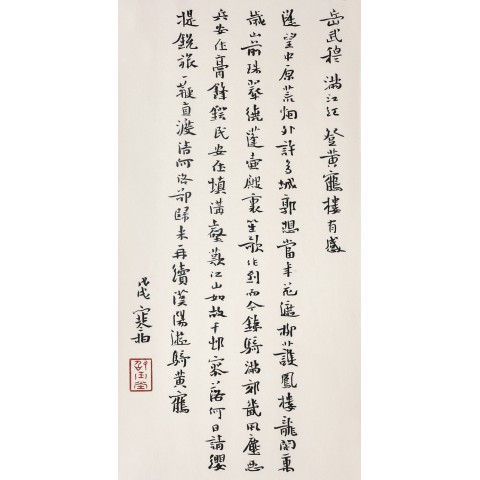 岳武穆 滿江紅 登黃鶴樓有感
遙望中原荒烟外許多城郭想當年花遮柳護鳳樓龍閣萬
歲山前珠翠繞蓬壺殿裏笙歌作到而今鐵騎滿郊畿風塵惡
兵安在膏鋒鍔民安在填溝壑歎江山如故千邨寥落何日請纓
提銳旅一鞭直渡清河洛卻歸來再續漢陽遊騎黃鶴
戊戌 寒柏